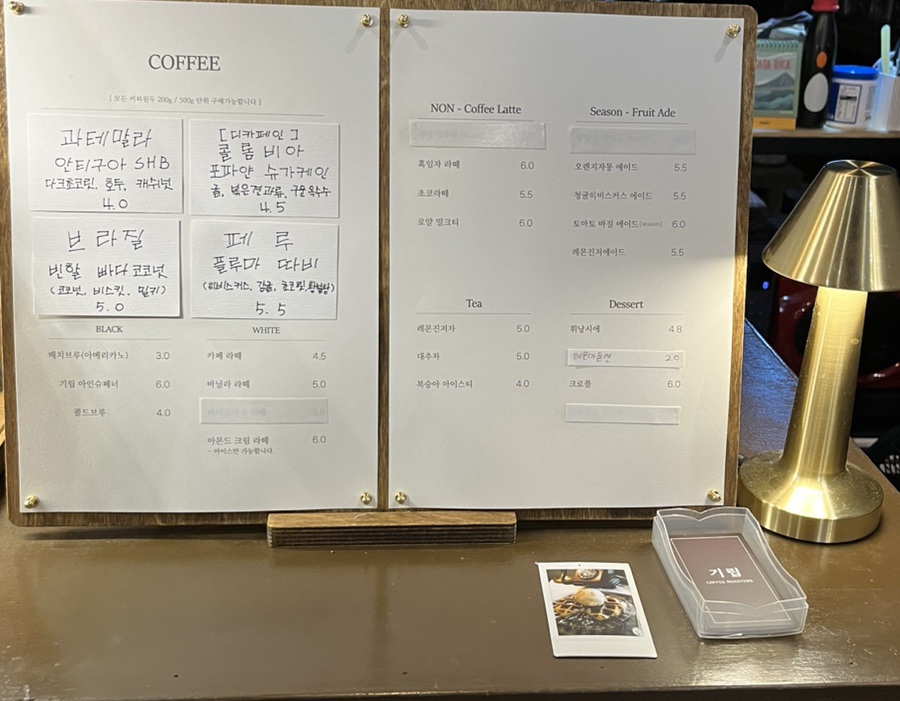 COFFEE
[ 모든 커피원두 200g / 500g 단위 구매가능합니다 ]
과테말라
안티구아 SHB
다크초코릿, 호두, 캐슈넛
4.0
[디카페인]
콜롬비아
포파얀 슈가케인
귤, 볶은견과류, 구운옥수수
4.5
브라질
빈할 빠다코코넛
(코코넛, 비스킷, 밀키)
5.0
페루
플루마 따비
(히비스커스, 감귤, 초코릿,
5.5
BLACK
배치브루(아메리카노) 3.0
기립 아인슈페너 6.0
콜드브루 4.0
WHITE
카페 라떼 4.5
바닐라 라떼 5.0
아몬드 크림 라떼 6.0
- 아이스만 가능합니다.
NON - Coffee Latte
흑임자 라떼 6.0
초코라떼 5.5
로얄 밀크티 6.0
Season - Fruit Ade
오렌지자몽 에이드 5.5
청귤히비스커스 에이드 5.5
토마토 바질 에이드 6.0
레몬진저에이드 5.5
Tea
레몬진저차 5.0
대추차 5.0
복숭아 아이스티 4.0
Dessert
휘낭시에 4.8
레몬마들렌 2.0
크로플 6.0
기립
COFFEE ROASTERS